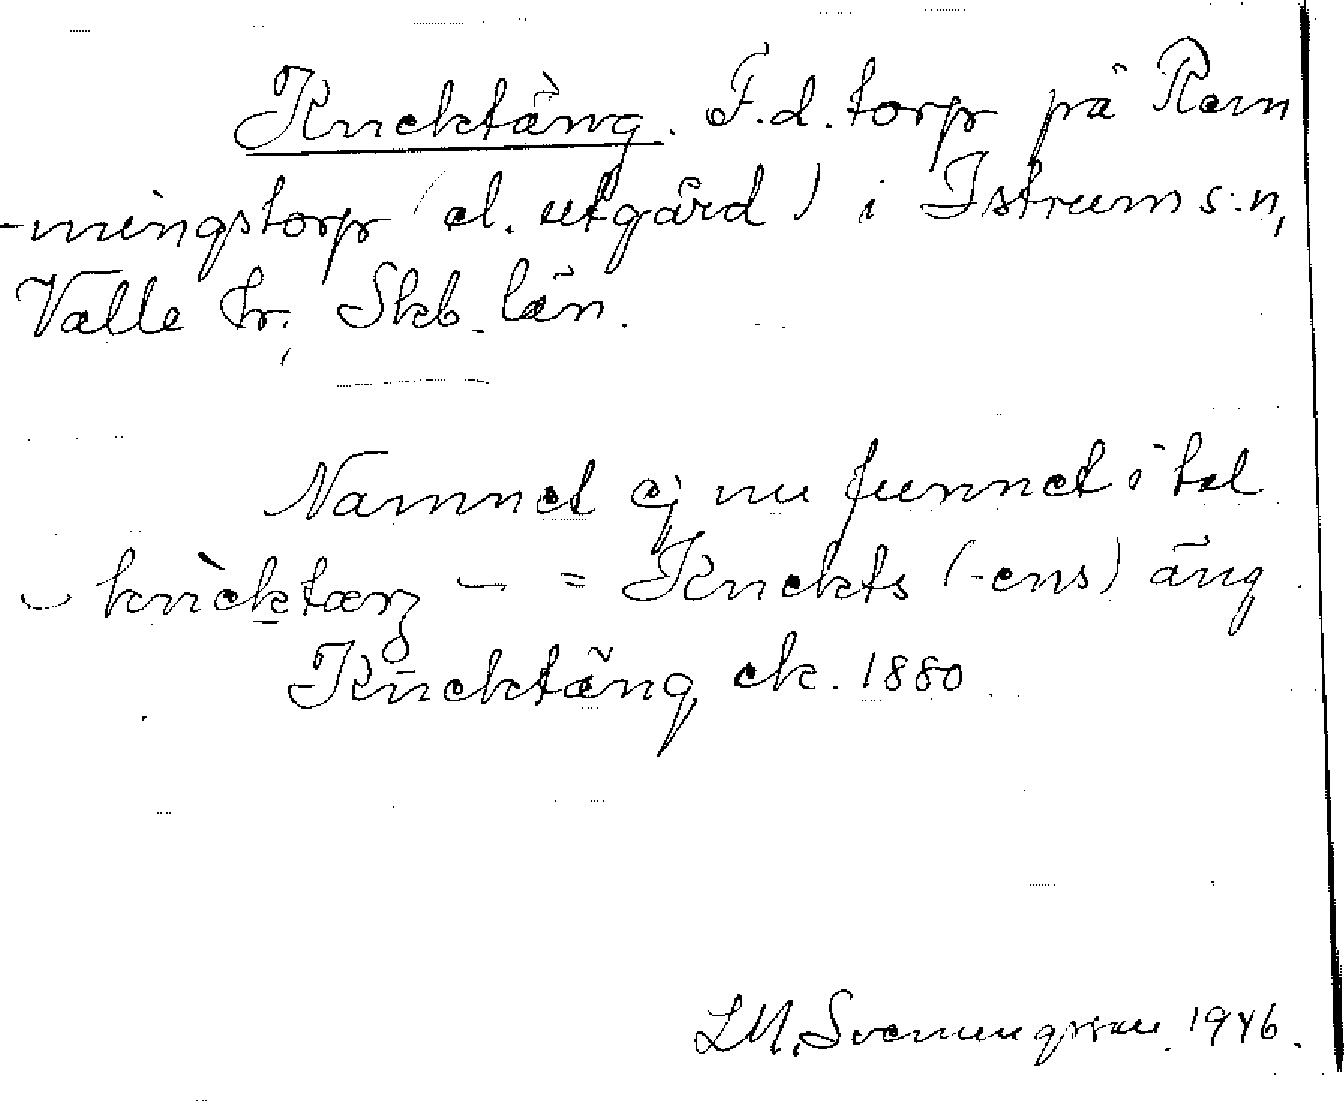 Knecktäng. F.d. torp på Rem
-mingstorp (el. utgård) i Istrum s:n,
Valle hr, Skb. län.
Namnet ej nu funnet i tal
= Knekts (-ens) äng.
Knecktäng ek. 1880
LM. Svenungsson. 1946.